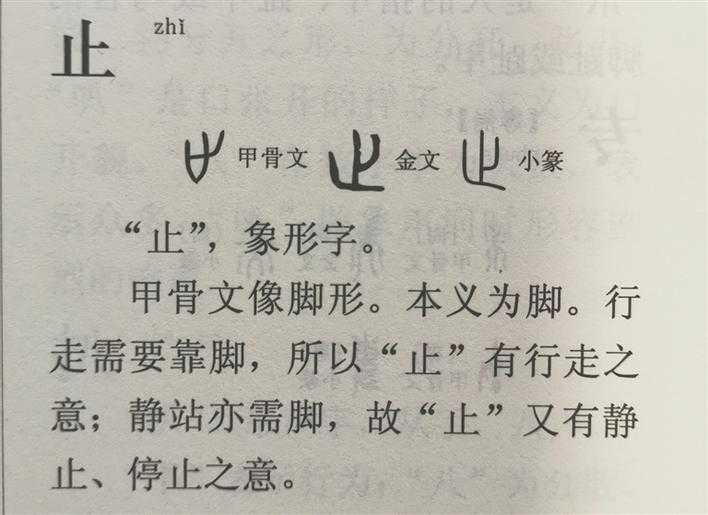 zhǐ
止
甲骨文 金文 小篆
“止”，象形字。
甲骨文像脚形。本义为脚。行
走需要靠脚，所以“止”有行走之
意；静站亦需脚，故“止”又有静
止、停止之意。